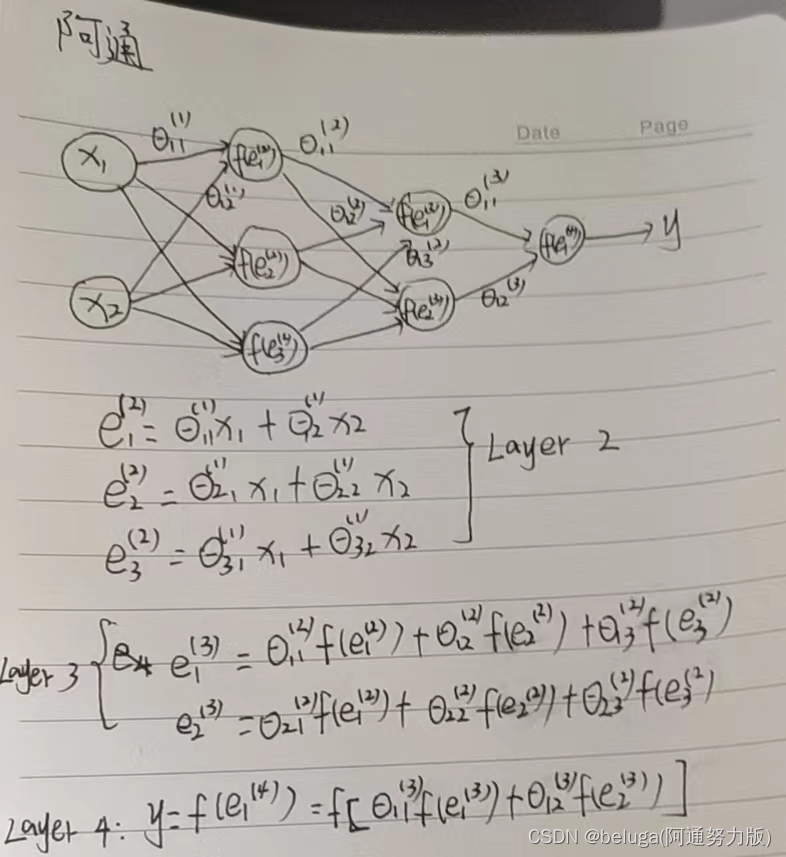 阿通
Date Page
x₁ θ₁₁⁽¹⁾ f(e₁⁽²⁾) θ₁₁⁽²⁾
θ₁₂⁽¹⁾ θ₁₂⁽²⁾ f(e₁⁽³⁾) θ₁₁⁽³⁾
f(e₂⁽²⁾) θ₁₃⁽²⁾ f(e₁⁽⁴⁾) y
x₂ f(e₂⁽³⁾) θ₁₂⁽³⁾
f(e₃⁽²⁾)
e₁⁽²⁾ = θ₁₁⁽¹⁾x₁ + θ₁₂⁽¹⁾x₂
e₂⁽²⁾ = θ₂₁⁽¹⁾x₁ + θ₂₂⁽¹⁾x₂ Layer 2
e₃⁽²⁾ = θ₃₁⁽¹⁾x₁ + θ₃₂⁽¹⁾x₂
Layer 3 e₁⁽³⁾ = θ₁₁⁽²⁾f(e₁⁽²⁾) + θ₁₂⁽²⁾f(e₂⁽²⁾) + θ₁₃⁽²⁾f(e₃⁽²⁾)
e₂⁽³⁾ = θ₂₁⁽²⁾f(e₁⁽²⁾) + θ₂₂⁽²⁾f(e₂⁽²⁾) + θ₂₃⁽²⁾f(e₃⁽²⁾
Layer 4: y = f(e₁⁽⁴⁾) = f[θ₁₁⁽³⁾f(e₁⁽³⁾) + θ₁₂⁽³⁾f(e₂⁽³⁾)]
CSDN @beluga(阿通努力版)